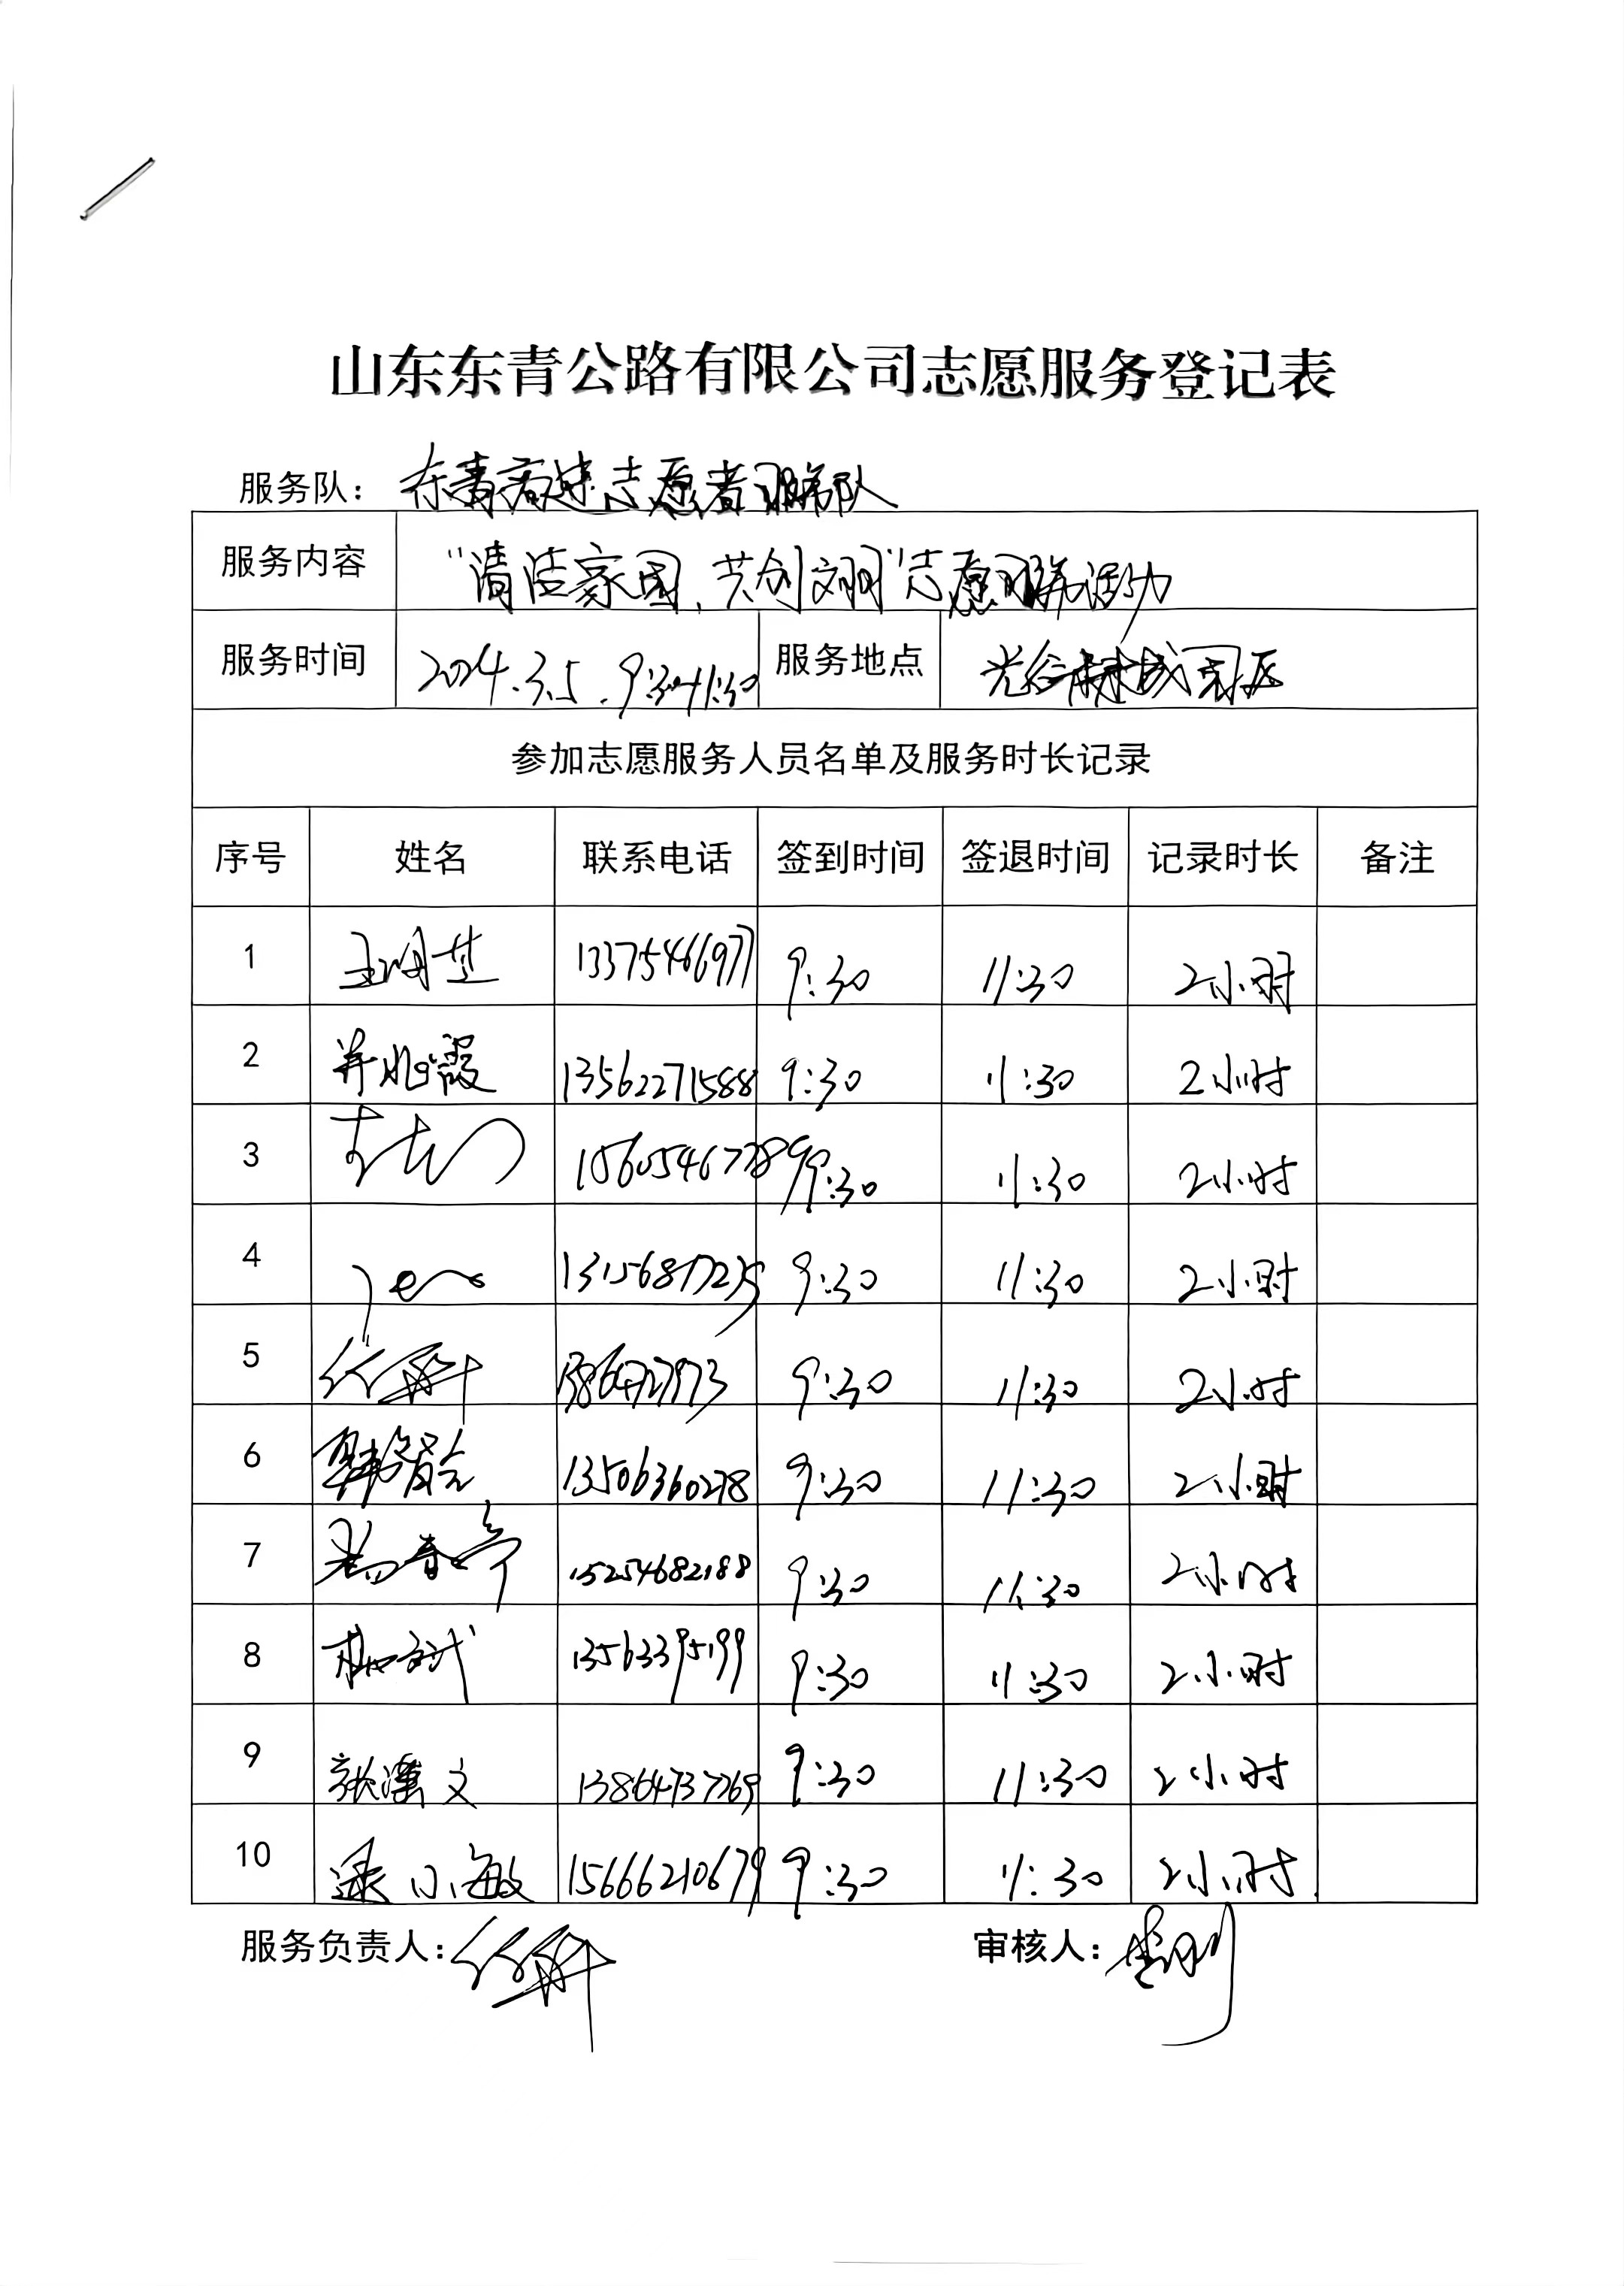 山东东青公路有限公司志愿服务登记表
服务队： 东青高速志愿者服务队
服务内容 “清洁家园、共创文明”志愿服务活动
服务时间 2024.3.5. 9:30-11:30 服务地点 光谷未来城园区
参加志愿服务人员名单及服务时长记录
序号 姓名 联系电话 签到时间 签退时间 记录时长 备注
1 13375466977 9:30 11:30 2小时
2 13562271588 9:30 11:30 2小时
3 9:30 11:30 2小时
4 9:30 11:30 2小时
5 9:30 11:30 2小时
6 13506360278 9:30 11:30 2小时
7 15254682188 9:30 11:30 2小时
8 13563395199 9:30 11:30 2小时
9 张潇文 13864737269 9:30 11:30 2小时
10 逯小敏 15666210679 9:30 11:30 2小时
服务负责人： 审核人：